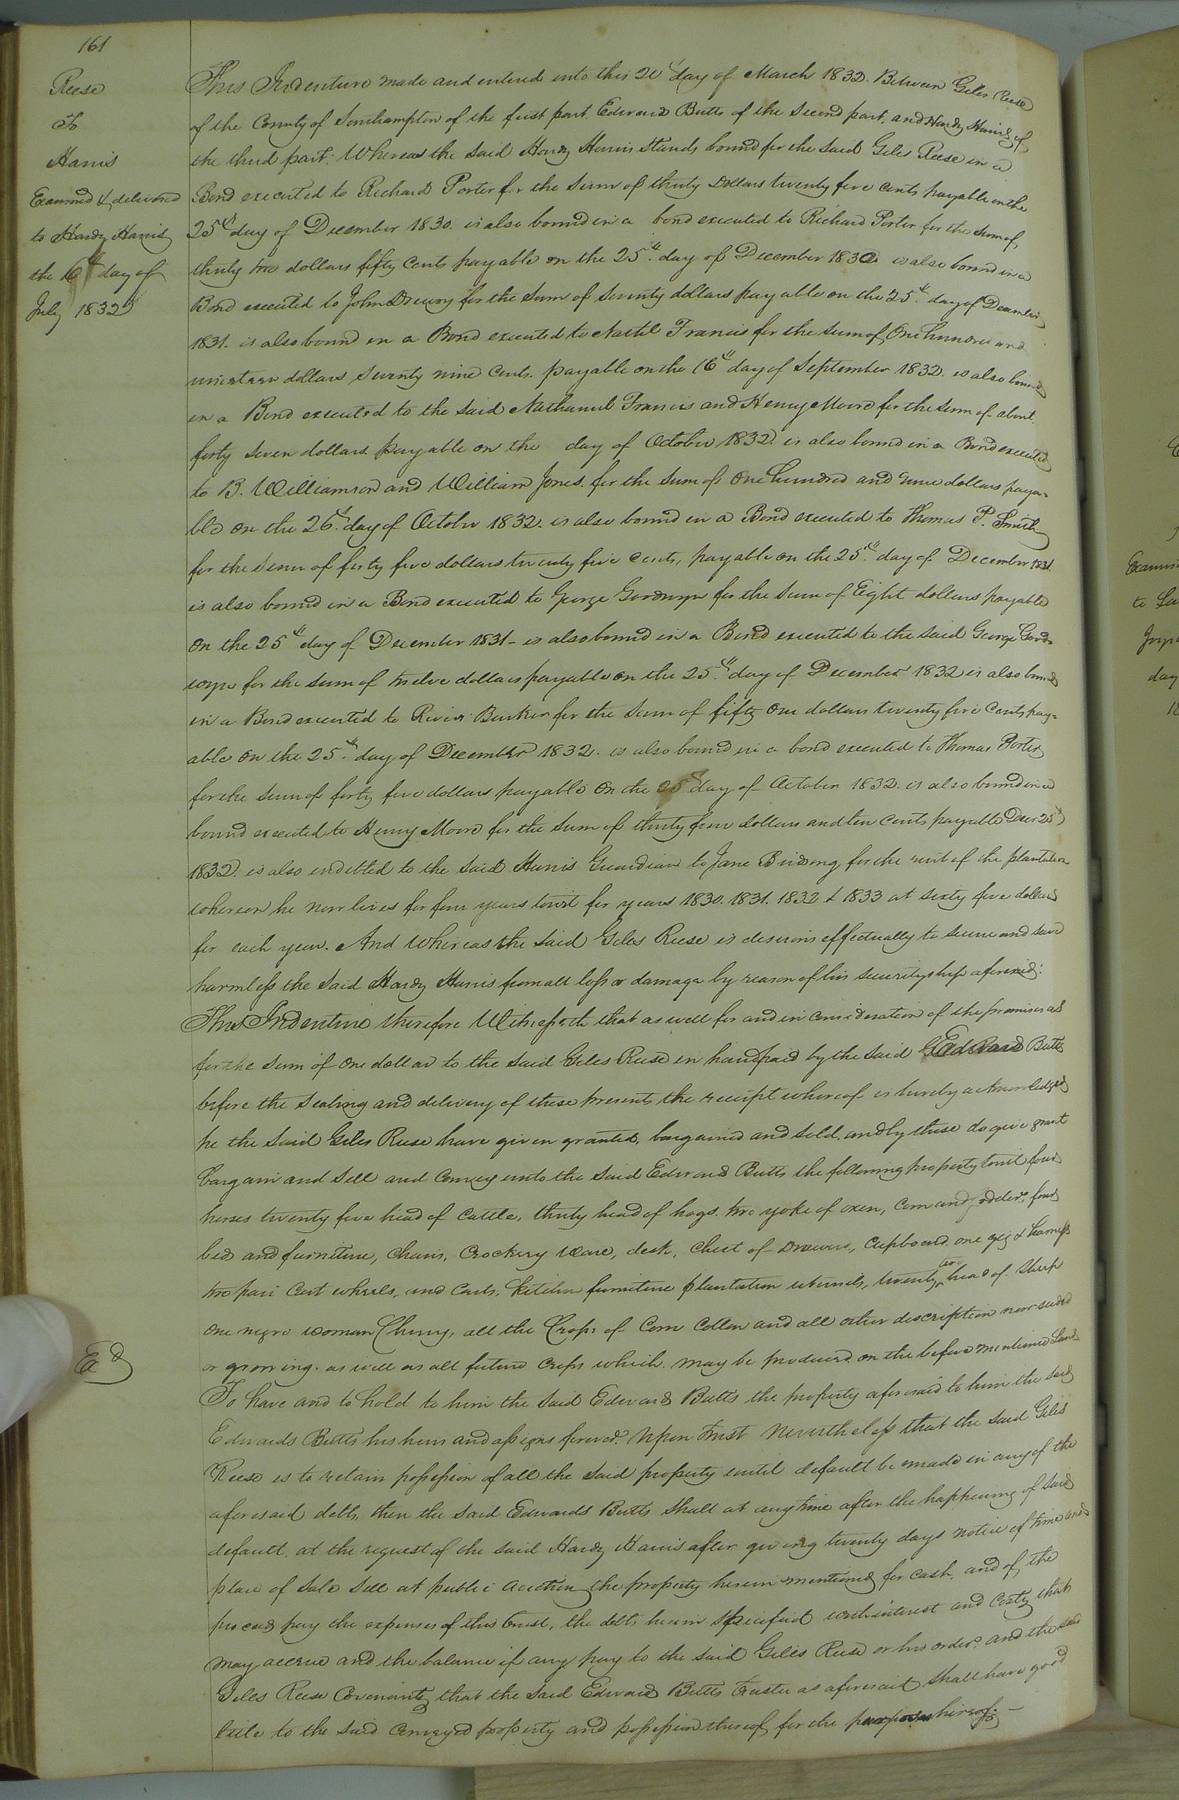 161
Reese
To
Harris
Examined & delivered
to Hardy Harris
the 16th day of
July 1832
This Indenture made and entered into this 20th day of March 1832. Between Giles Reese
of the County of Southampton of the first part, Edward Butts of the Second part, and Hardy Harris of
the third part; Whereas the said Hardy Harris Stands bound for the said Giles Reese in a
Bond executed to Richard Porter for the Sum of thirty Dollars twenty five cents payable on the
25th day of December 1830. is also bound in a bond executed to Richard Porter for the Sum of
thirty two dollars fifty Cents payable on the 25th day of December 1830 is also bound in a
Bond executed to John Drewry for the Sum of Seventy dollars payable on the 25th day of December
1831. is also bound in a Bond executed to Nathl Francis for the Sum of One hundred and
nineteen dollars Seventy nine Cents. payable on the 16th day of September 1832. is also bound
in a Bond executed to the said Nathaniel Francis and Henry Moore for the Sum of about
forty Seven dollars payable on the day of October 1832 is also bound in a Bond executed
to B. Williamson and William Jones. for the Sum of One hundred and nine dollars paya-
ble on the 26th day of October 1832. is also bound in a Bond executed to Thomas P. Smith
for the Sum of forty five dollars twenty five cents, payable on the 25th day of December 1831
is also bound in a Bond executed to George Goodwyn for the Sum of Eight dollars payable
on the 25th day of December 1831 - is also bound in a Bond executed to the said George Good-
wyn for the Sum of twelve dollars payable on the 25th day of December 1832 is also bound
in a Bond executed to River Barker for the Sum of fifty One dollars twenty five Cents pay-
able on the 25th day of December 1832. is also bound in a bond executed to Thomas Porter
for the Sum of forty five dollars payable on the 25th day of October 1832. is also bound in a
bound executed to Henry Moore for the Sum of thirty four dollars and ten Cents payable Decr 25th
1832. is also indebted to the said Harris Guardian to Jane Birdsong for the rent of the plantation
whereon he now lives for four years towit for years 1830. 1831. 1832 & 1833 at sixty five dollars
for each year. And Whereas the said Giles Reese is desirous effectually to secure and save
harmless the Said Hardy Harris from all loss or damage by reason of his securityship aforesaid:
This Indenture therefore Witnesseth that as well for and in consideration of the premises as
for the Sum of One dollar to the said Giles Reese in hand paid by the said Edward Butts
before the Sealing and delivery of these presents the receipt whereof is hereby acknowledged
he the Said Giles Reese have given granted, bargained and Sold, and by these do give grant
bargain and Sell and Convey unto the Said Edward Butts the following property towit four
horses twenty five head of Cattle, thirty head of hogs. two yoke of oxen, Corn and fodder, four
beds and furniture, Chairs, Crockery Ware, desk, Chest of Drawers, Cupboard one gig & harness
two pair Cart wheels, and Carts, kitchen furniture plantation utensils, twenty two head of Sheep
One negro woman Cherry, all the Crops of Corn Cotton and all other description now seeded
or growing. as well as all future Crops which. may be produced on the before mentioned Land
Ed
To have and to hold to him the said Edward Butts the property aforesaid to him the said
Edwards Butts his heirs and assigns forever. Upon trust Nevertheless that the said Giles
Reese is to retain possession of all the said property until default be made in any of the
aforesaid debts, then the said Edwards Butts Shall at any time after the happening of said
default at the request of the said Hardy Harris after giving twenty days notice of time and
place of Sale Sell at public Auction the property herein mentioned for cash. and of the
proceeds pay the expenses of this trust, the debts herein specified with interest and Costs that
may accrue and the balance if any pay to the said Giles Reese or his order: and the said
Giles Reese Covenants that the said Edward Butts trustee as aforesaid Shall have good
title to the said Conveyed property and possession thereof, for the purposes hereof:-
Examin
to
day